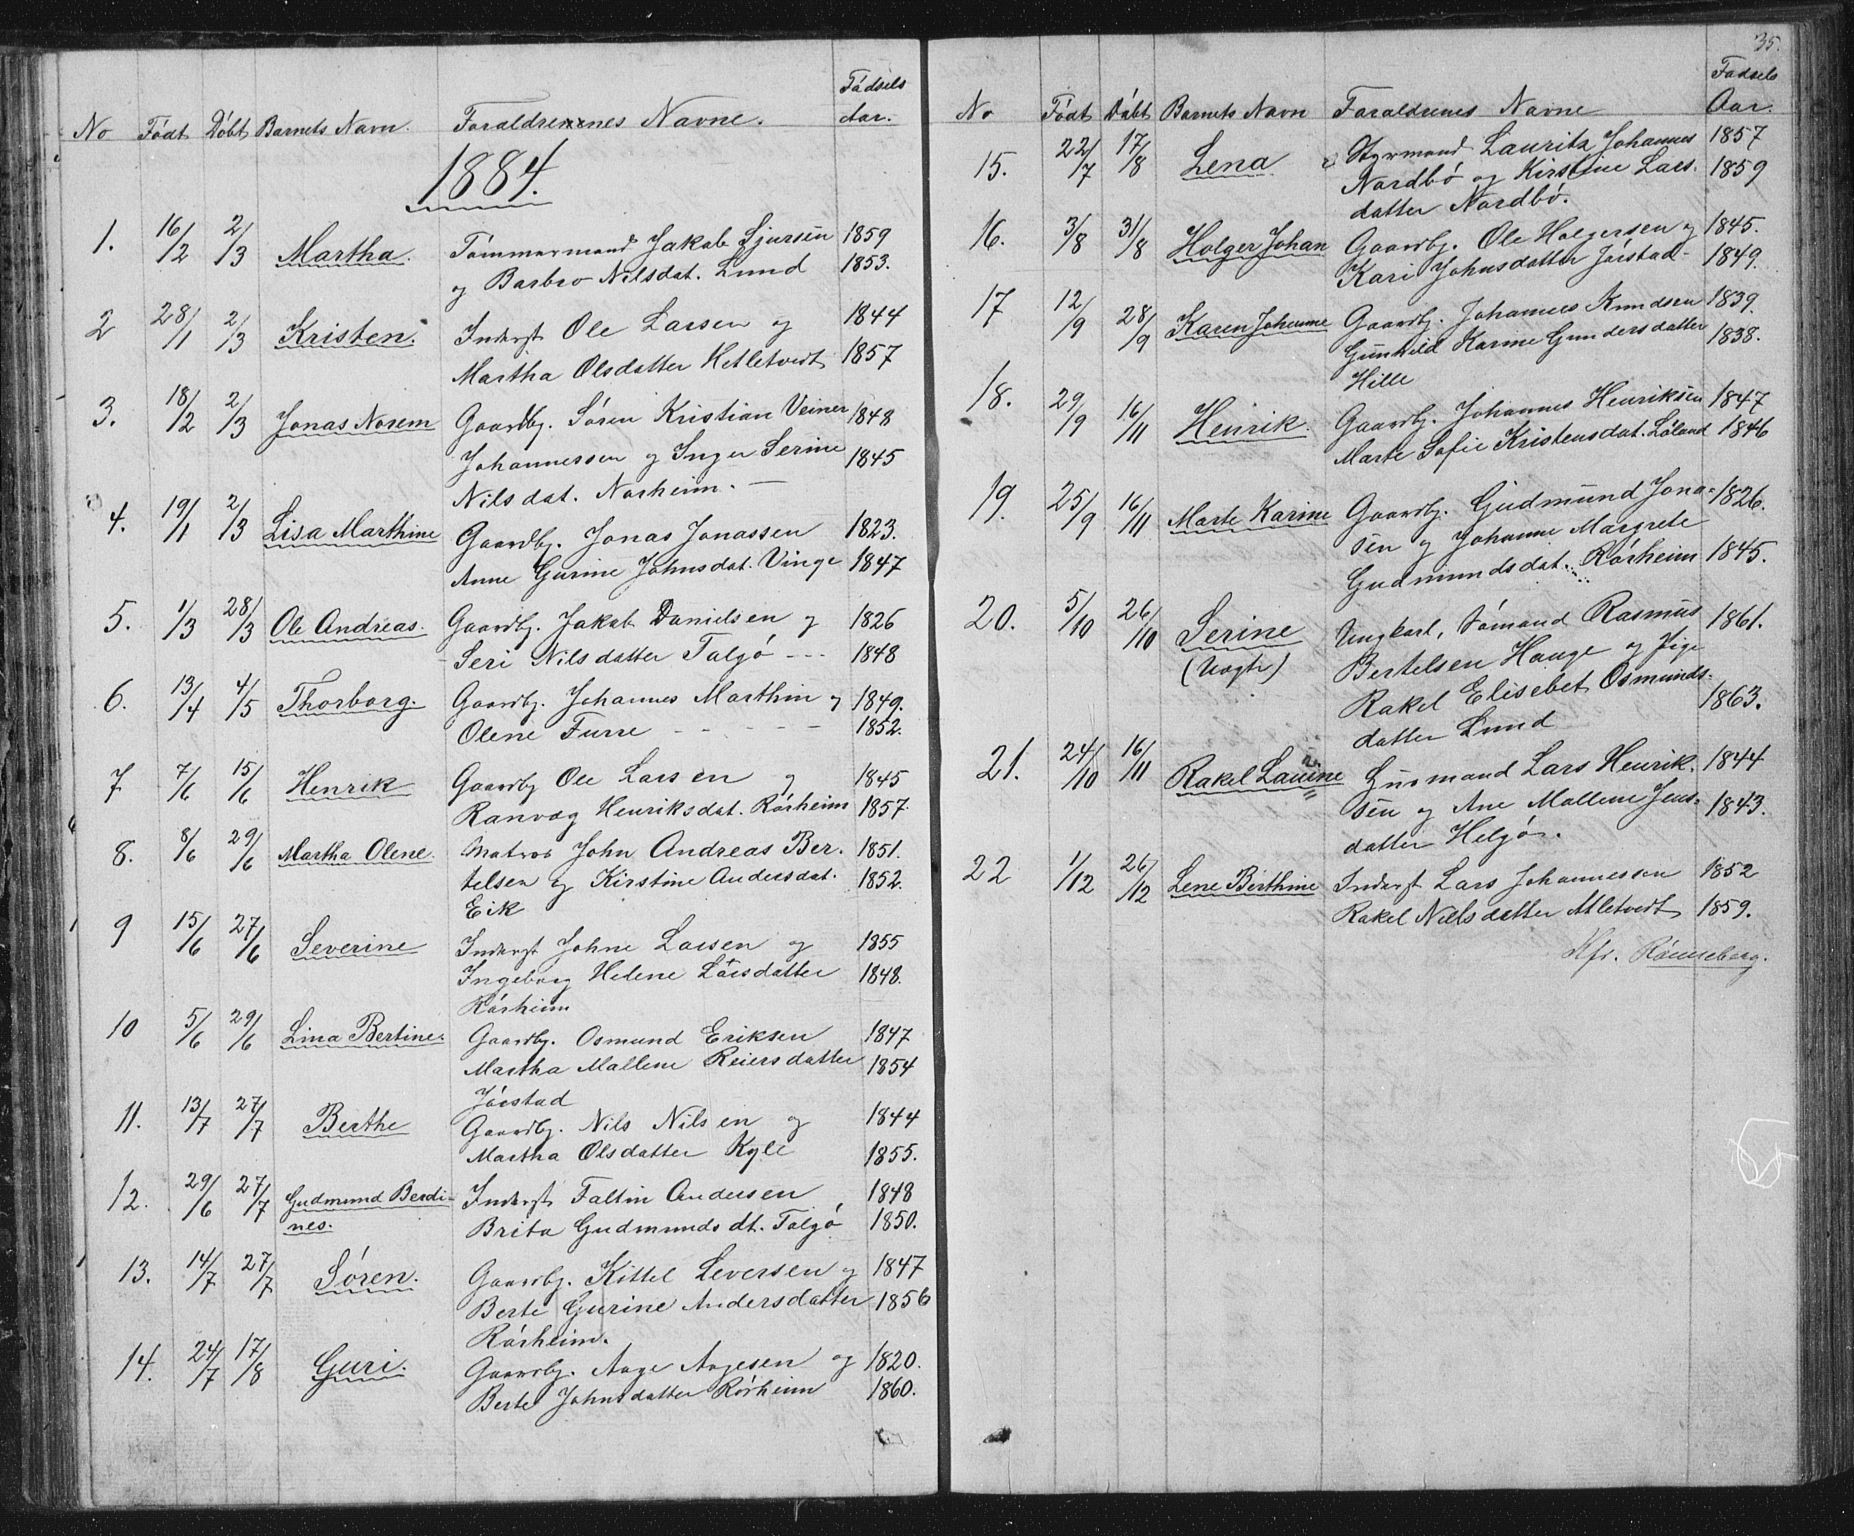 No Født Døbt Barnets Navn. Forældrenes Navne. Fødsels Aar.
1884.
1. 16/2 2/3 Martha. Tømmermand Jakob Sjursen 1859
og Barbro Nilsdat. Lund 1853.
2 28/1 2/3 Kristen. Inderst Ole Larsen og 1844
Martha Olsdatter Hetletvedt 1857
3. 18/2 2/3 Jonas Norem Gaardbr. Søren Kristian Veiner 1848
Johannessen og Inger Serine 1845
Nilsdat. Norheim. —
4. 19/1 2/3 Lisa Marthine Gaardbr. Jonas Jonassen 1823.
Anne Gurine Johnsdat. Vinge 1847
5. 1/3 28/3 Ole Andreas. Gaardbr. Jakob Danielsen og 1826
Seri Nilsdatter Talgø - - - 1848
6. 13/4 4/5 Thorborg. Gaardbr. Johannes Marthin og 1849.
Olene Furre - - - - 1852.
7 7/6 15/6 Henrik Gaardbr Ole Larsen og 1845
Ranvæg Henriksdat. Rørheim 1857.
8. 8/6 29/6 Martha Olene. Matros John Andreas Ber- 1851.
telsen og Kirstine Andersdat. 1852.
Eik
9 15/6 27/6 Severine Inderst Johne Larsen og 1855
Ingeborg Helene Larsdatter 1848.
Rørheim
10 5/6 29/6 Lina Bertine. Gaardbr. Osmund Eriksen 1847
Martha Mallene Reiersdatter 1854
Jørstad
11. 13/7 27/7 Berthe Gaardbr. Nils Nilsen og 1844
Martha Olsdatter Kyle 1855.
12. 29/6 27/7 Gudmund Berdi- Inderst Faltin Andersen 1848
nes. Brita Gudmundsdt. Talgø 1850.
13. 14/7 27/7 Søren. Gaardbr. Kittel Seversen og 1847
Berte Gurine Andersdatter 1856
Rørheim.
14. 24/7 17/8 Guri. Gaardbr. Aage Aagesen og 1820.
Berte Johnsdatter Rørheim 1860.
35.
No Født Døbt Barnets Navn Forældrenes Navne Fødsels Aar.
15. 22/7 17/8 Lena Styrmand Lauritz Johannes 1857
Nordbø og Kirstine Lars- 1859
datter Nordbø.
16. 3/8 31/8 Holger Johan Gaardbr. Ole Holgersen og 1845.
Kari Johnsdatter Jørstad- 1849.
17 12/9 28/9 Karen Johanne Gaardbr. Johannes Knudsen 1839.
Gunhild Karine Gundersdatter 1838.
Hille
18. 29/9 16/11 Henrik. Gaardbr. Johannes Henriksen 1847
Marte Sofie Kristensdat. Løland 1846
19. 25/9 16/11 Marte Karine Gaardbr. Gudmund Jona- 1826.
sen og Johanne Margrete
Gudmundsdat. Rørheim 1845.
20. 5/10 26/10 Serine Ungkarl, Sømand Rasmus 1861.
(Uægte) Bertelsen Hauge og Pige
Rakel Elisebet Osmunds- 1863.
datter Lund
21. 24/10 16/11 Rakel Laurine Husmand Lars Henrik- 1844
sen og Ane Mallene Jens- 1843.
datter Helgø.
22 1/12 26/12 Lene Berthine Inderst Lars Johannessen 1852
Rakel Nielsdatter Atletvedt 1859.
Kfr. Rønneberg.